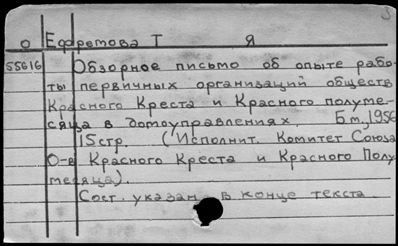 О Ефремова Т Я
55616 Обзорное письмо об опыте рабо-
ты первичных организаций обществ
Красного Креста и Красного полуме-
сяца в домоуправлениях. Б.м, 1956
15 стр. (Исполнит. Комитет Союза
О-в Красного Креста и Красного Полу
месяца).
Сост. указан в конце текста